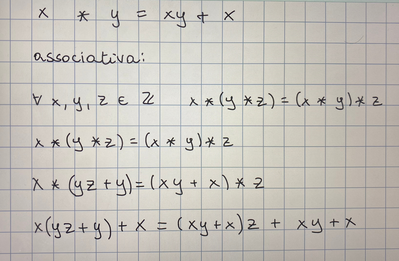 x * y = xy + x
associativa:
∀ x, y, z ∈ ℤ x * (y * z) = (x * y) * z
x * (y * z) = (x * y) * z
x * (yz + y) = (xy + x) * z
x(yz + y) + x = (xy + x)z + xy + x